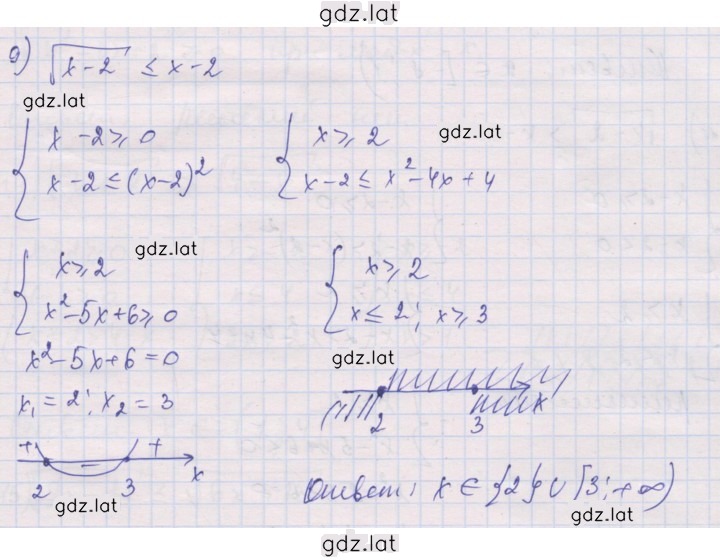 gdz.lat
9) √(x-2) ≤ x-2
gdz.lat
{ x-2 ≥ 0
x-2 ≤ (x-2)²
{ x ≥ 2
x-2 ≤ x²-4x+4
gdz.lat
gdz.lat
{ x ≥ 2
x²-5x+6 ≥ 0
{ x ≥ 2
x ≤ 2; x ≥ 3
x²-5x+6=0
x₁=2; x₂=3
gdz.lat
2 3 x
+ - +
2 3 x
gdz.lat
Ответ: x ∈ {2} ∪ [3; +∞)
gdz.lat
gdz.lat